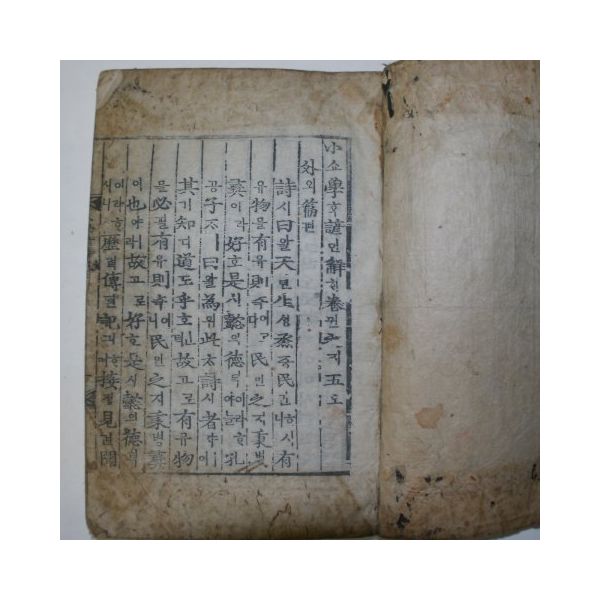 小쇼學ᄒᆞᆨ諺언解ᄒᆡ卷권之지五오
外외篇편
詩시曰왈天텬生ᄉᆡᆼ烝증民민ᄒᆞ시니有
유物믈有유則즉이로다民민之지秉병
彝이라好호是시懿의德덕이라ᄒᆞ야ᄂᆞᆯ孔
공子ᄌᆞㅣ曰왈爲위此ᄎᆞ詩시者쟈ㅣ여
其기知디道도乎호ᅟᅵᆫ뎌故고로有유物
믈必필有유則즉이니民민之지秉병彝
이也야ㅣ라故고로好호是시懿의德덕
이라ᄒᆞ시니歷력傳뎐記긔ᄒᆞ며接졉見견聞